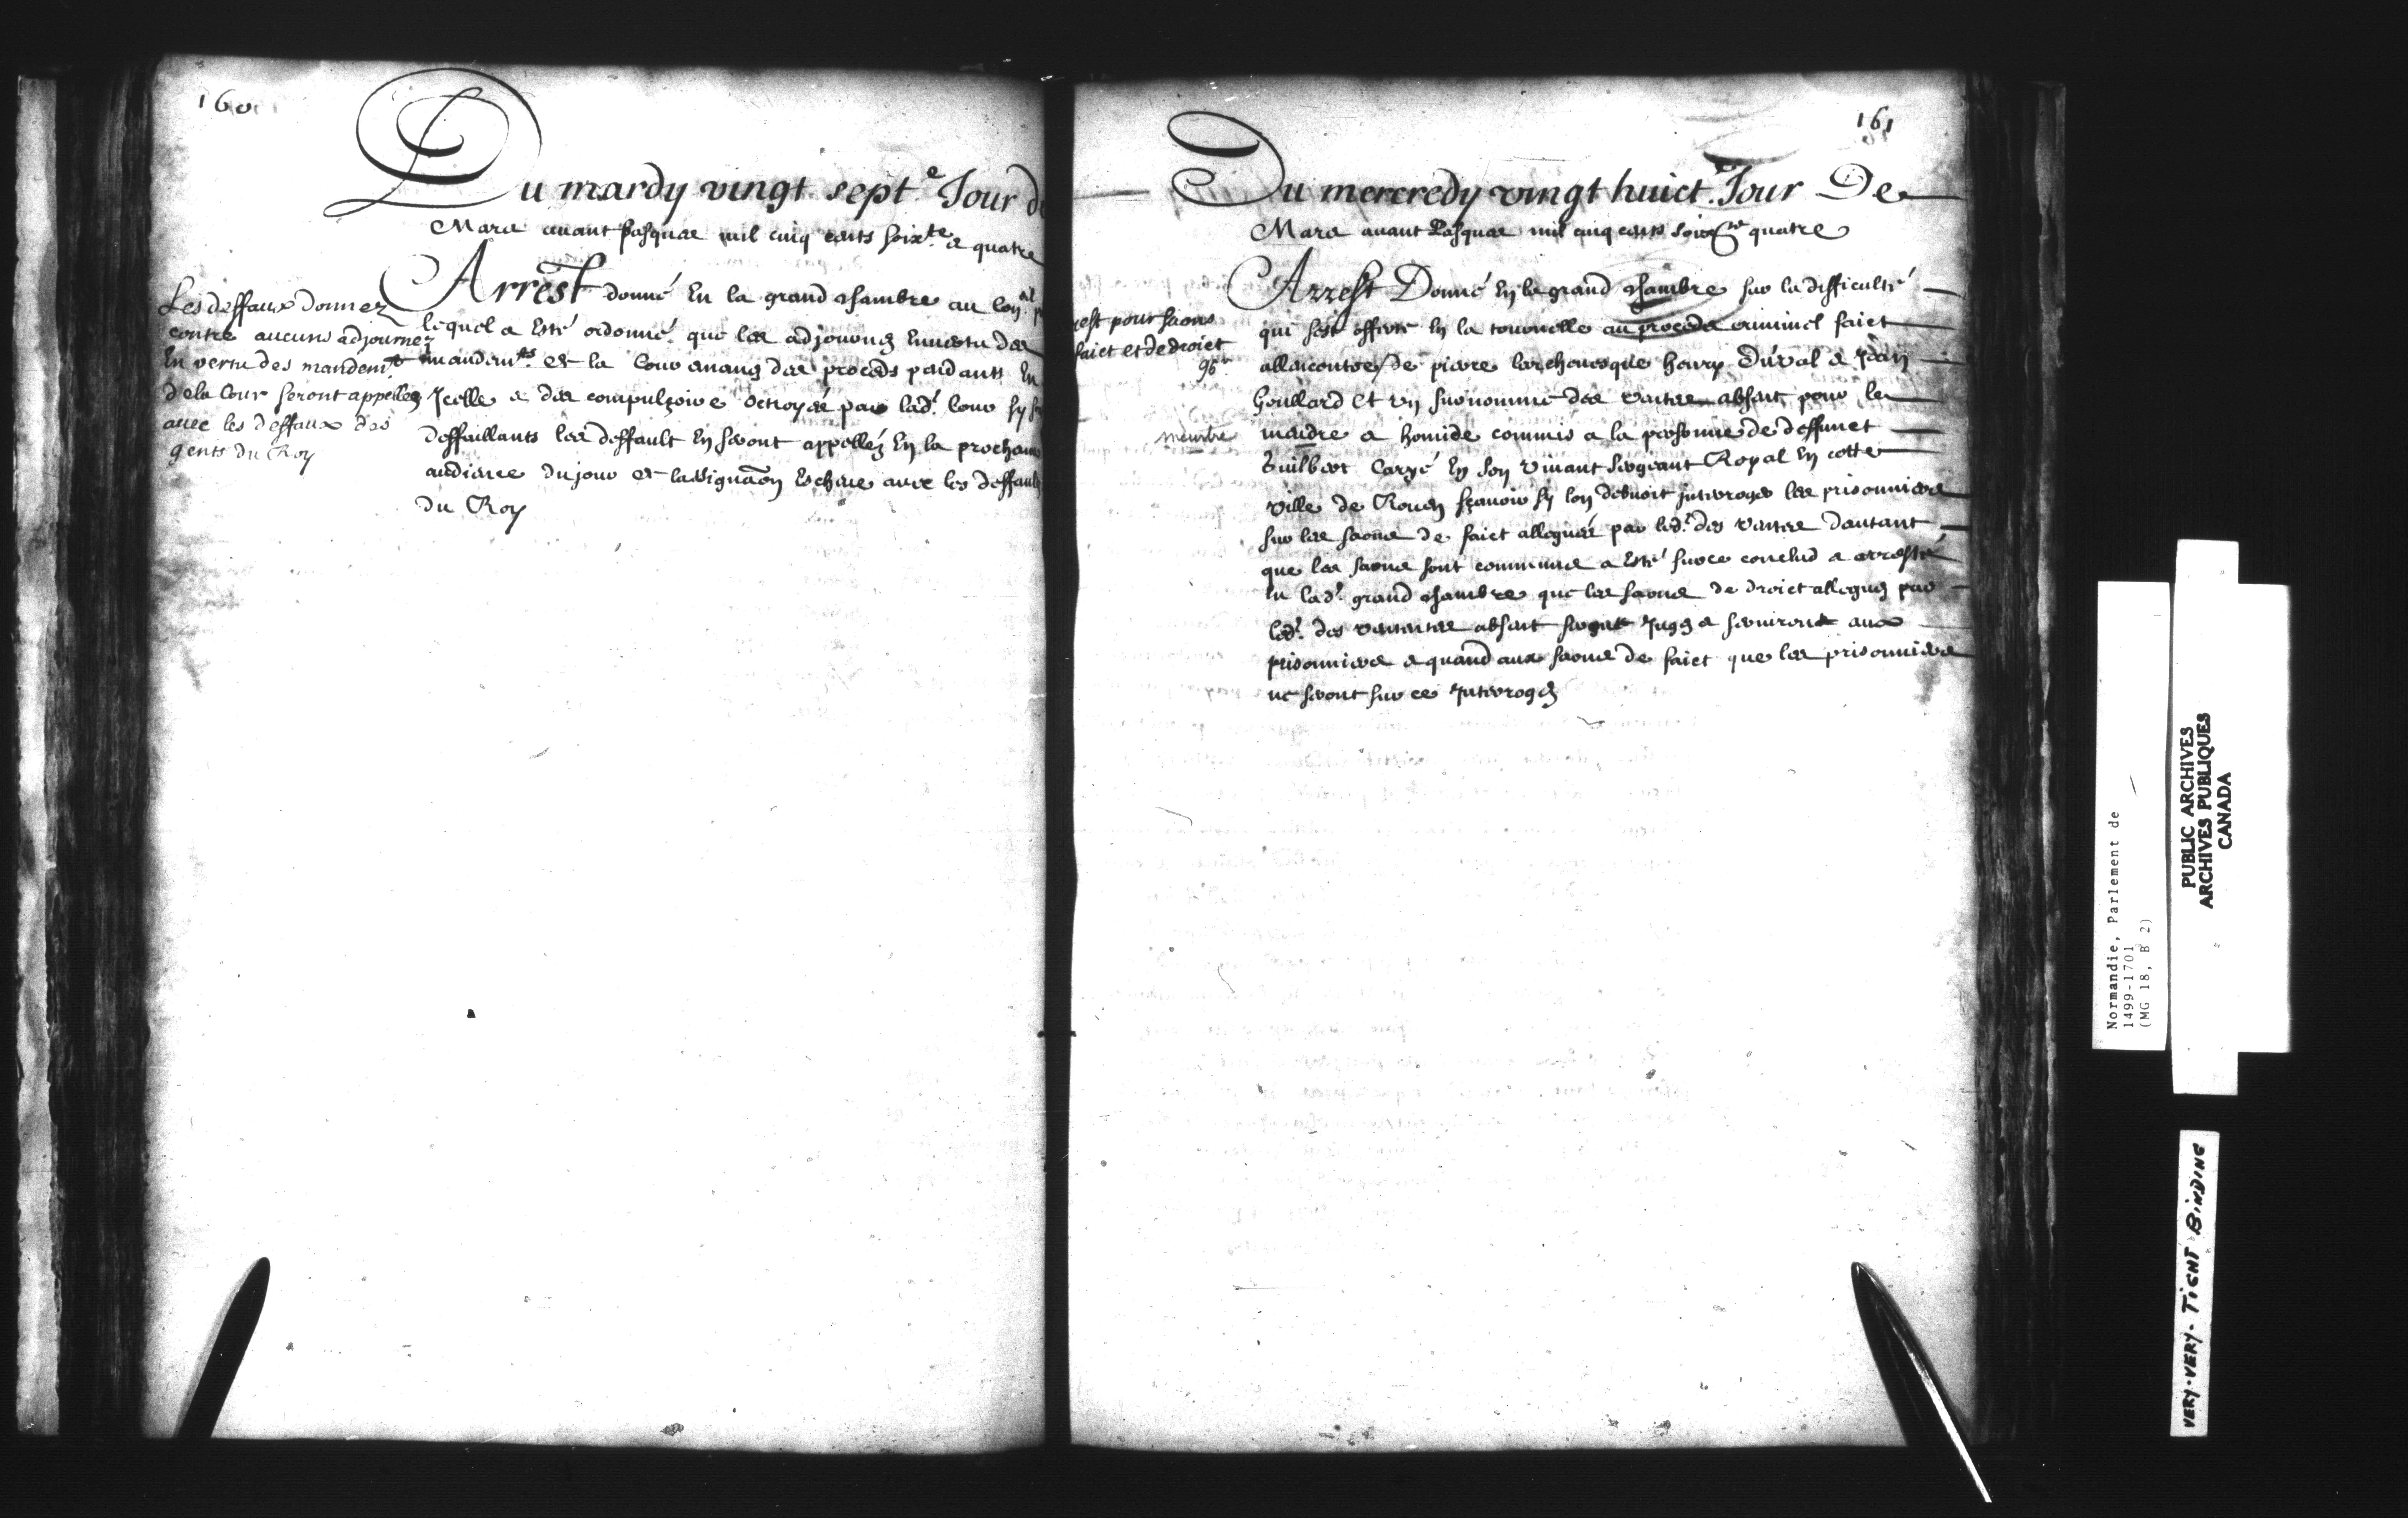 160
Du mardy vingt sept.e Jour de
Mars auant Pasques mil cinq cents soixte & quatre
Les deffaux donnez
contre aucuns adjournez
En vertu des mandemts
de la Cour seront appellez
auec les deffaux des
gents du Roy
Arrest donné En la grand chambre au conal
lequel a Esté ordonné que les adjournez Enuertu des
mandemts de la Cour des proceds pendants En
Jcelle & des compulçoire octroyés par lad. Cour sy
deffaillants les deffault En seront appelléz En la prochaine
audience du jour de lassignaon Escheue auec les deffaults
du Roy
161
Du mercredy vingt huict. Jour De
Mars auant Pasques mil cinq cents soixte quatre
pour saons
faict et de droict
meurtre
Arrest Donné En la grand chambre sur la difficulté
qui sest offerte En la tournelle au proceds criminel faict
allencontre de pierre larcheuesque henry Duval & Jean
Goullard Et vn surnommé des vertes absent pour le
murdre & homide commis a la personne de deffunct
Guilbert Carré En son viuant sergeant Royal En cette
ville de Rouen sçauoir sy lon debuoit jnterroger les prisonniers
sur les saons de faict allegués par led. des vertes dautant
que les saons sont communs a Esté surce conclud & arresté
En lad. grand chambre que les saons de droict alleguez par
led. des vertes absent seront Jugez & seruiront aux
prisonniers & quand aux saons de faict que les prisonniers
ne seront sur ce Jnterrogez
Normandie, Parlement de
1499-1701
(MG 18, B 2)
PUBLIC ARCHIVES
ARCHIVES PUBLIQUES
CANADA
VERY-VERY-TIGHT BINDING